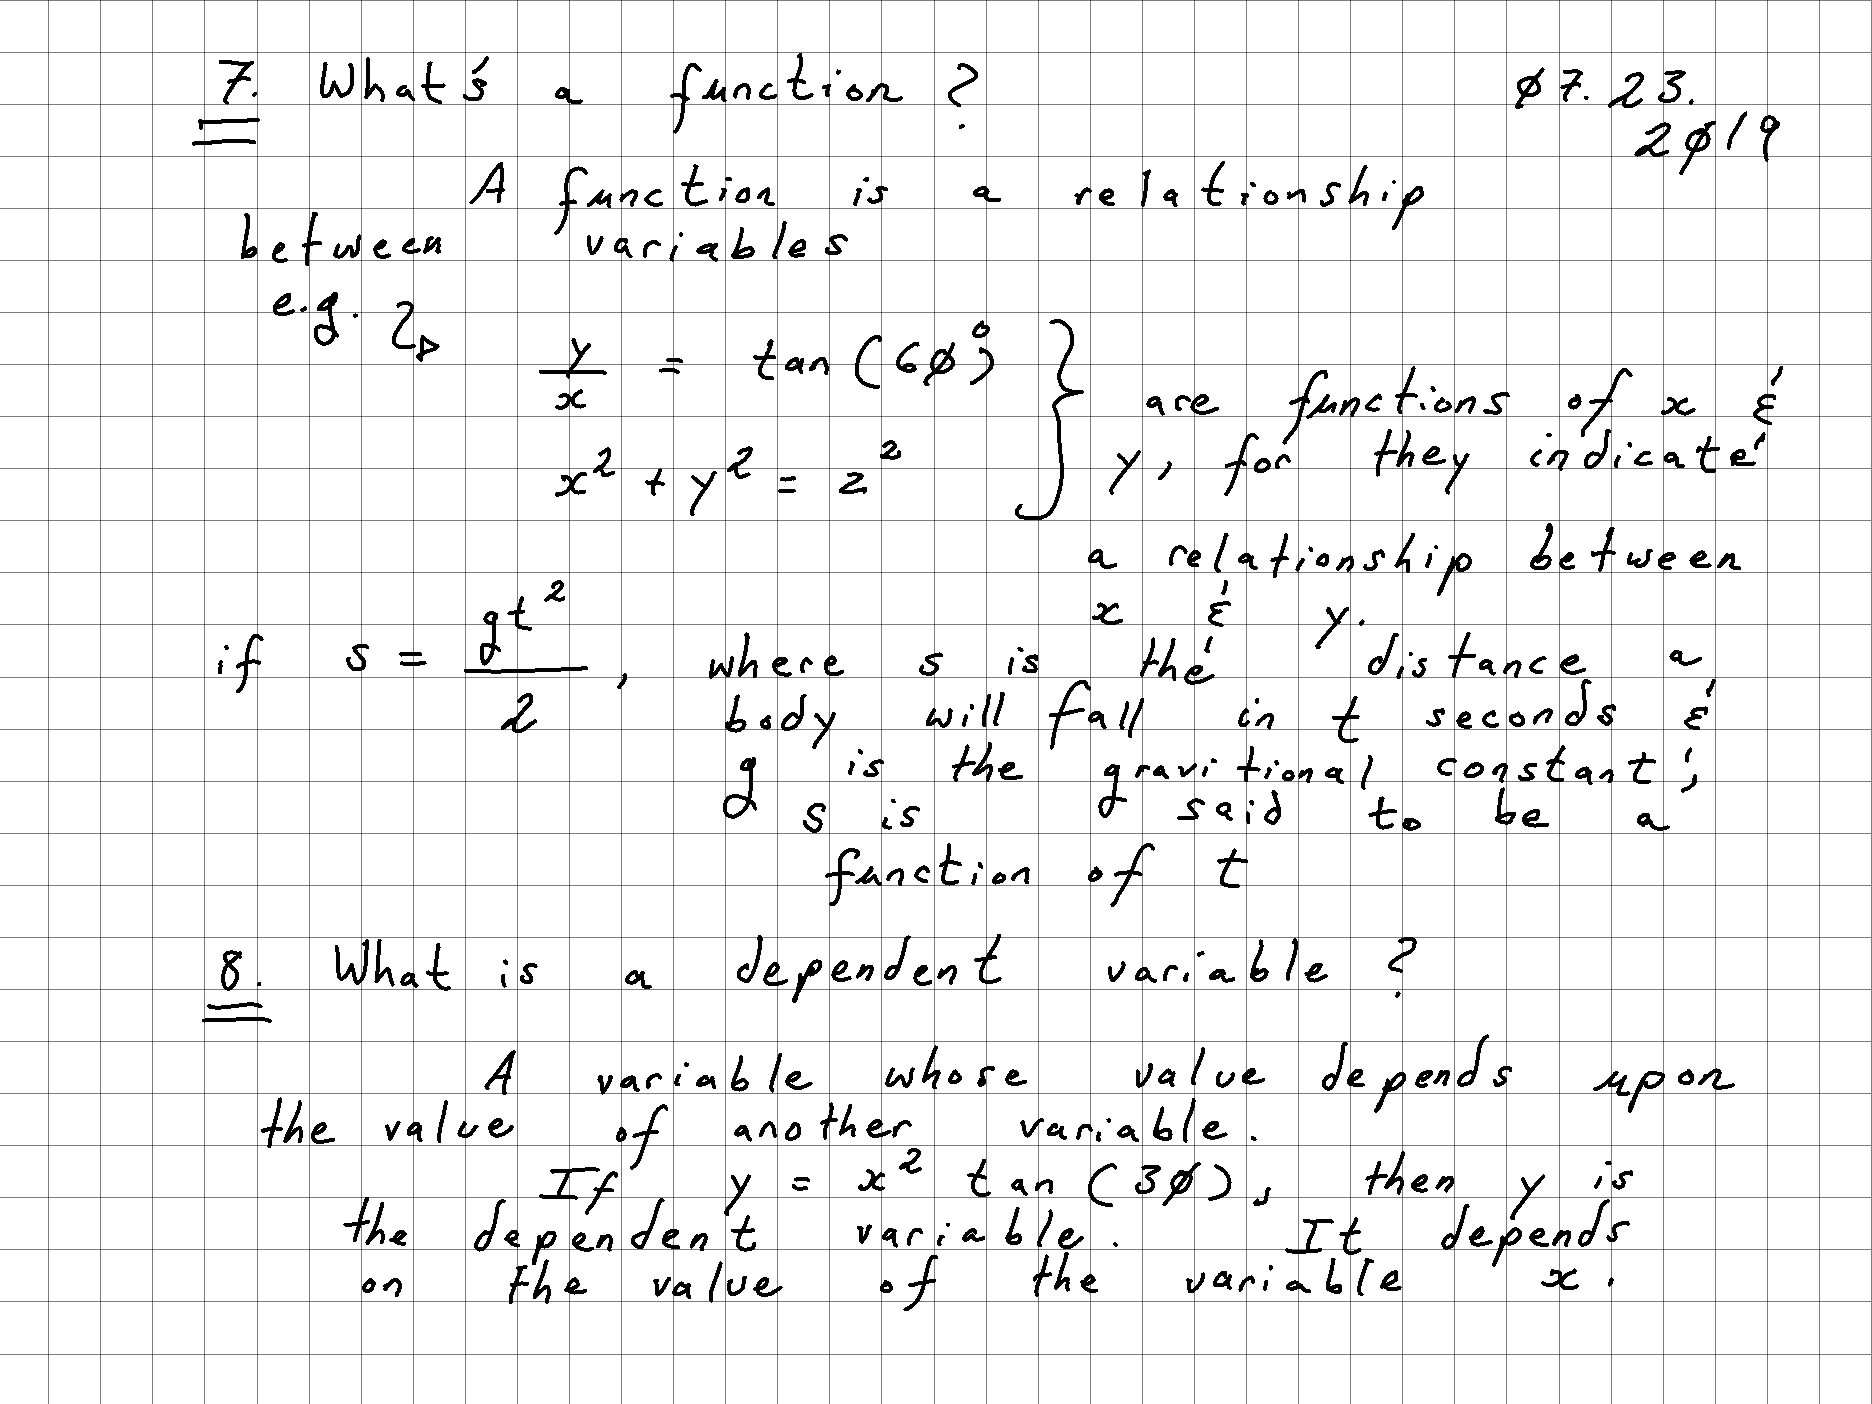 7. What's a function? ø7.23.
2ø19
A function is a relationship
between variables
e.g.
y/x = tan(6ø°)
x² + y² = z²
} are functions of x &
y, for they indicate
a relationship between
x & y.
if s = gt²/2, where s is the distance a
body will fall in t seconds &
g is the gravitional constant,
s is said to be a
function of t
8. What is a dependent variable?
A variable whose value depends upon
the value of another variable.
If y = x² tan(3ø), then y is
the dependent variable. It depends
on the value of the variable x.